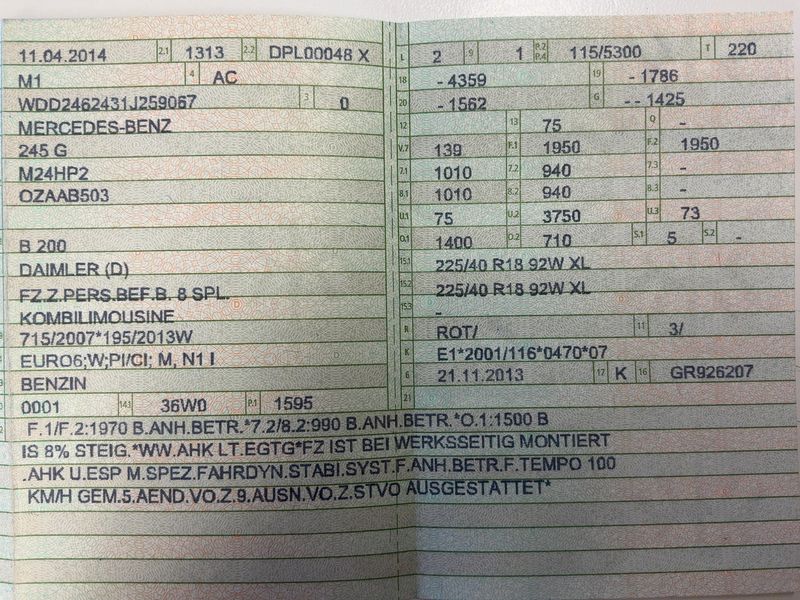 11.04.2014 2.1 1313 2.2 DPL00048 X
M1 4 AC
WDD2462431J259067 3 0
MERCEDES-BENZ
245 G
M24HP2
OZAAB503
B 200
DAIMLER (D)
FZ.Z.PERS.BEF.B. 8 SPL.
KOMBILIMOUSINE
715/2007*195/2013W
EURO6;W;PI/CI; M, N1 I
BENZIN
0001 14.1 36W0 P.1 1595
L 2 9 1 P.2 P.4 115/5300 T 220
18 - 4359 19 - 1786
20 - 1562 G - - 1425
12 13 75 Q -
V.7 139 F.1 1950 F.2 1950
7.1 1010 7.2 940 7.3 -
8.1 1010 8.2 940 8.3 -
U.1 75 U.2 3750 U.3 73
O.1 1400 O.2 710 S.1 5 S.2 -
15.1 225/40 R18 92W XL
15.2 225/40 R18 92W XL
15.3 -
R ROT/ 11 3/
K E1*2001/116*0470*07
6 21.11.2013 17 K 16 GR926207
21
F.1/F.2:1970 B.ANH.BETR.*7.2/8.2:990 B.ANH.BETR.*O.1:1500 B
IS 8% STEIG.*WW.AHK LT.EGTG*FZ IST BEI WERKSSEITIG MONTIERT
.AHK U.ESP M.SPEZ.FAHRDYN.STABI.SYST.F.ANH.BETR.F.TEMPO 100
KM/H GEM.5.AEND.VO.Z.9.AUSN.VO.Z.STVO AUSGESTATTET*